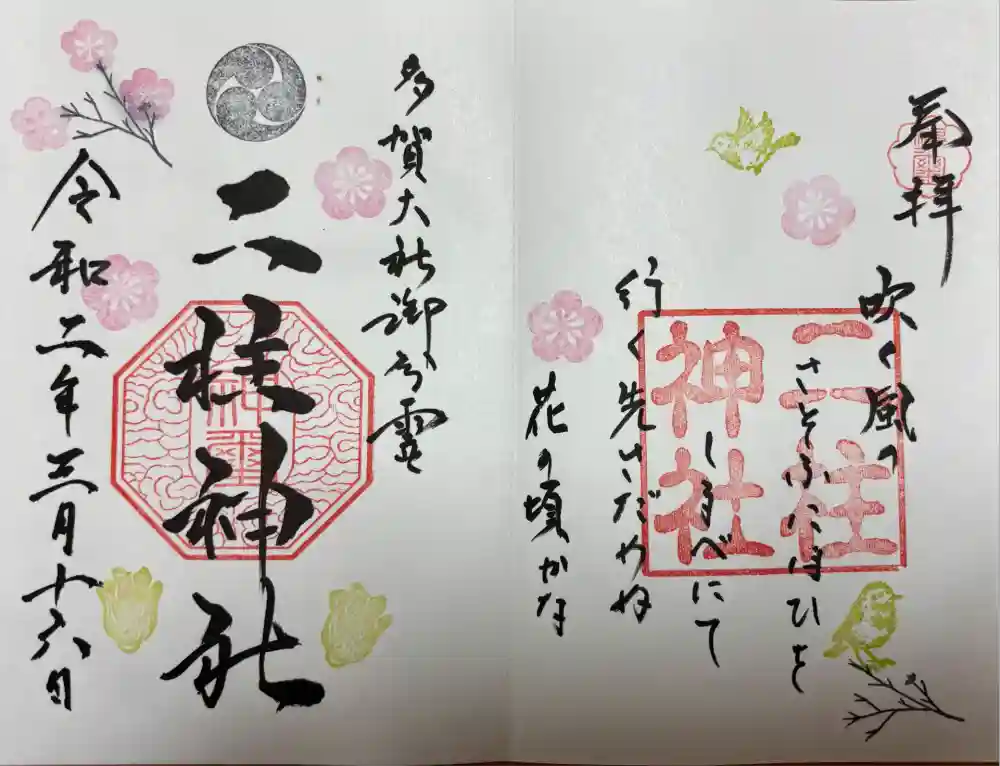 奉拝
吹く風の
さそふにほひを
しるべにて
行く先さだめぬ
花の頃かな
二柱
神社
多賀大社御分霊
二柱神社
神璽
令和二年三月十六日